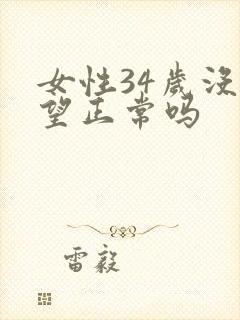 女性34岁没
望正常吗
雷毅